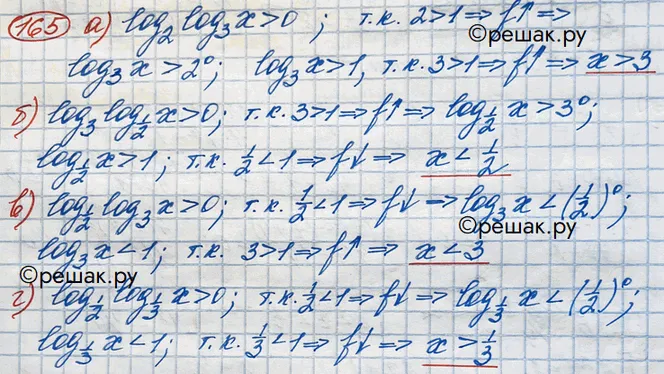 165 а) log₂ log₃ x > 0 ; т.к. 2>1 ⇒ f↑ ⇒
©решак.ру
log₃ x > 2⁰; log₃ x > 1, т.к. 3>1 ⇒ f↑ ⇒ x > 3
б) log₃ log_{1/2} x > 0; т.к. 3>1 ⇒ f↑ ⇒ log_{1/2} x > 3⁰;
log_{1/2} x > 1; т.к. 1/2 < 1 ⇒ f↓ ⇒ x < 1/2
в) log_{1/2} log₃ x > 0; т.к. 1/2 < 1 ⇒ f↓ ⇒ log₃ x < (1/2)⁰;
©решак.ру
log₃ x < 1; т.к. 3>1 ⇒ f↑ ⇒ x < 3
©решак.ру
г) log_{1/2} log_{1/3} x > 0; т.к. 1/2 < 1 ⇒ f↓ ⇒ log_{1/3} x < (1/2)⁰;
log_{1/3} x < 1; т.к. 1/3 < 1 ⇒ f↓ ⇒ x > 1/3